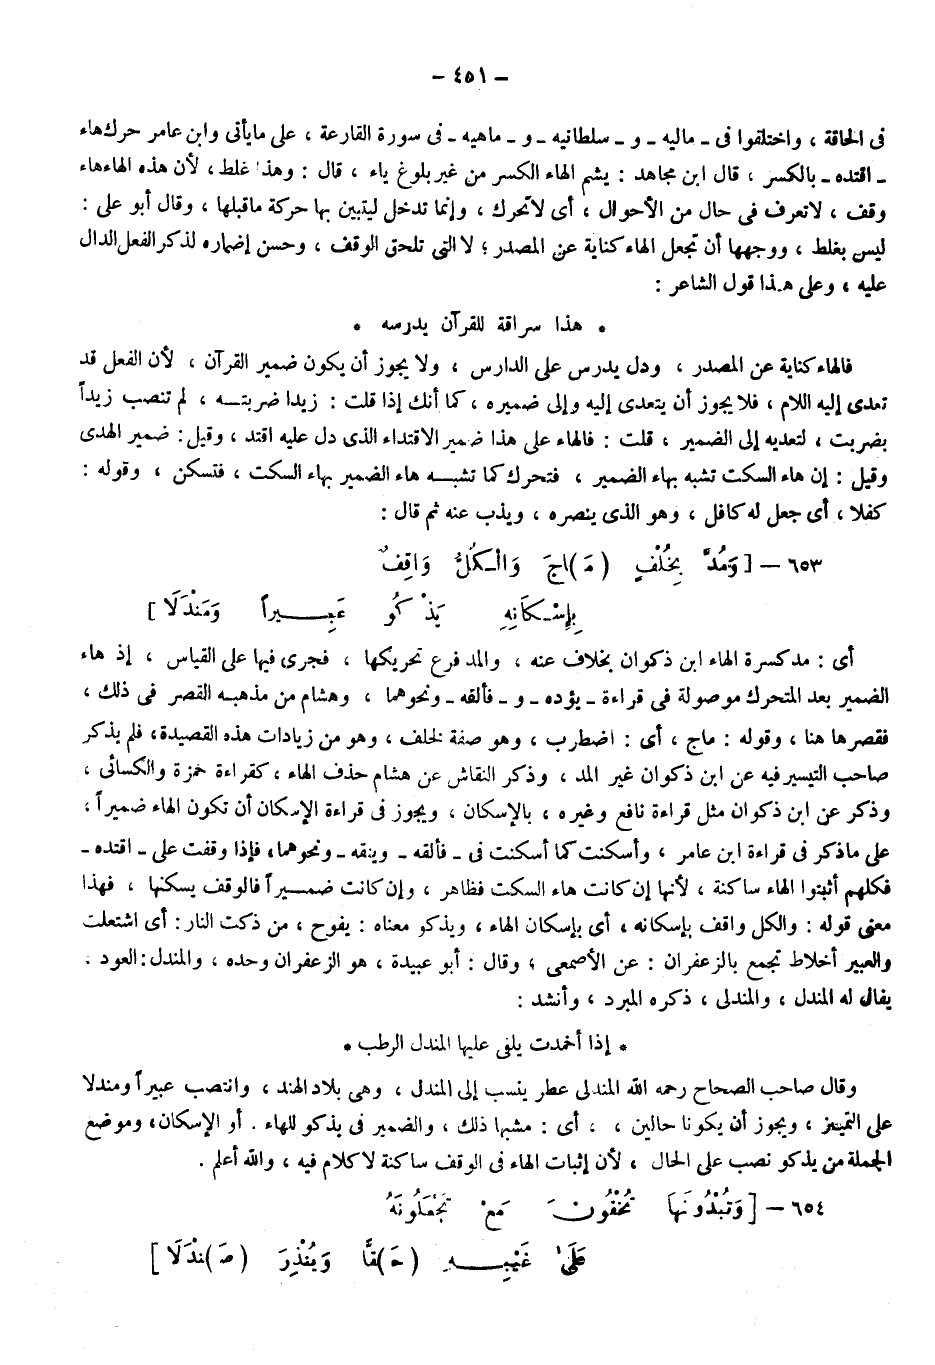 – ٤٥١ –
فى الحاقة ، واختلفوا فى ـ ماليه ـ و ـ سلطانيه ـ و ـ ماهيه ـ فى سورة القارعة ، على مايأتى وابن عامر حرك هاء
ـ اقتده ـ بالكسر ، قال ابن مجاهد : يشم الهاء الكسر من غير بلوغ ياء ، قال : وهذا غلط ، لأن هذه الهاء هاء
وقف ، لاتعرف فى حال من الأحوال ، أى لاتحرك ، وإنما تدخل ليتبين بها حركة ماقبلها ، وقال أبو على :
ليس بغلط ، ووجهها أن تجعل الهاء كناية عن المصدر ؛ لا التى تلحق الوقف ، وحسن إضماره لذكر الفعل الدال
عليه ، وعلى هذا قول الشاعر :
* هذا سراقة للقرآن يدرسه *
فالهاء كناية عن المصدر ، ودل يدرس على الدارس ، ولا يجوز أن يكون ضمير القرآن ، لأن الفعل قد
تعدى إليه اللام ، فلا يجوز أن يتعدى إليه وإلى ضميره ، كما أنك إذا قلت : زيدا ضربته ، لم تنصب زيداً
بضربت ، لتعديه إلى الضمير ، قلت : فالهاء على هذا ضمير الاقتداء الذى دل عليه اقتد ، وقيل : ضمير الهدى
وقيل : إن هاء السكت تشبه بهاء الضمير ، فتحرك كما تشبه هاء الضمير بهاء السكت ، فتسكن ، وقوله :
كفلا ، أى جعل له كافل ، وهو الذى ينصره ، ويذب عنه ثم قال :
٦٥٣ – [وَمُدَّ بِخُلْفٍ (مَ)اجَ وَالْكُلُّ وَاقِفٌ
بِإِسْكَانِهِ يَذْكُو عَبِيراً وَمَنْدَلَا ]
أى : مد كسرة الهاء ابن ذكوان بخلاف عنه ، والمد فرع تحريكها ، فجرى فيها على القياس ، إذ هاء
الضمير بعد المتحرك موصولة فى قراءة ـ يؤده ـ و ـ فألقه ـ ونحوهما ، وهشام من مذهبه القصر فى ذلك ،
فقصرها هنا ، وقوله : ماج ، أى : اضطرب ، وهو صفة لخلف ، وهو من زيادات هذه القصيدة ، فلم يذكر
صاحب التيسير فيه عن ابن ذكوان غير المد ، وذكر النقاش عن هشام حذف الهاء ، كقراءة حمزة والكسائى ،
وذكر عن ابن ذكوان مثل قراءة نافع وغيره ، بالإسكان ، ويجوز فى قراءة الإسكان أن تكون الهاء ضميراً ،
على ماذكر فى قراءة ابن عامر ، وأسكنت كما أسكنت فى ـ فألقه ـ ويتقه ـ ونحوهما ، فإذا وقفت على ـ اقتده ـ
فكلهم أثبتوا الهاء ساكنة ، لأنها إن كانت هاء السكت فظاهر ، وإن كانت ضميراً فالوقف يسكنها ، فهذا
معنى قوله : والكل واقف بإسكانه ، أى بإسكان الهاء ، ويذكو معناه : يفوح ، من ذكت النار : أى اشتعلت
والعبير أخلاط تجمع بالزعفران : عن الأصمعى ؛ وقال : أبو عبيدة ، هو الزعفران وحده ، والمندل : العود .
يقال له المندل ، والمندلى ، ذكره المبرد ، وأنشد :
* إذا أخمدت يلقى عليها المندل الرطب *
وقال صاحب الصحاح رحمه الله المندلى عطر ينسب إلى المندل ، وهى بلاد الهند ، وانتصب عبيراً ومندلا
على التمييز ، ويجوز أن يكونا حالين ، ، أى : مشبها ذلك ، والضمير فى يذكو للهاء . أو الإسكان ، وموضع
الجملة من يذكو نصب على الحال ، لأن إثبات الهاء فى الوقف ساكنة لا كلام فيه ، والله أعلم .
٦٥٤ – [وَتُبْدُونَهَا تُخْفُونَ مَعْ تَجْعَلُونَهُ
عَلَى غَيْبِهِ (حَ)قًّا وَيُنْذِرَ (صَ)نْدَلَا ]